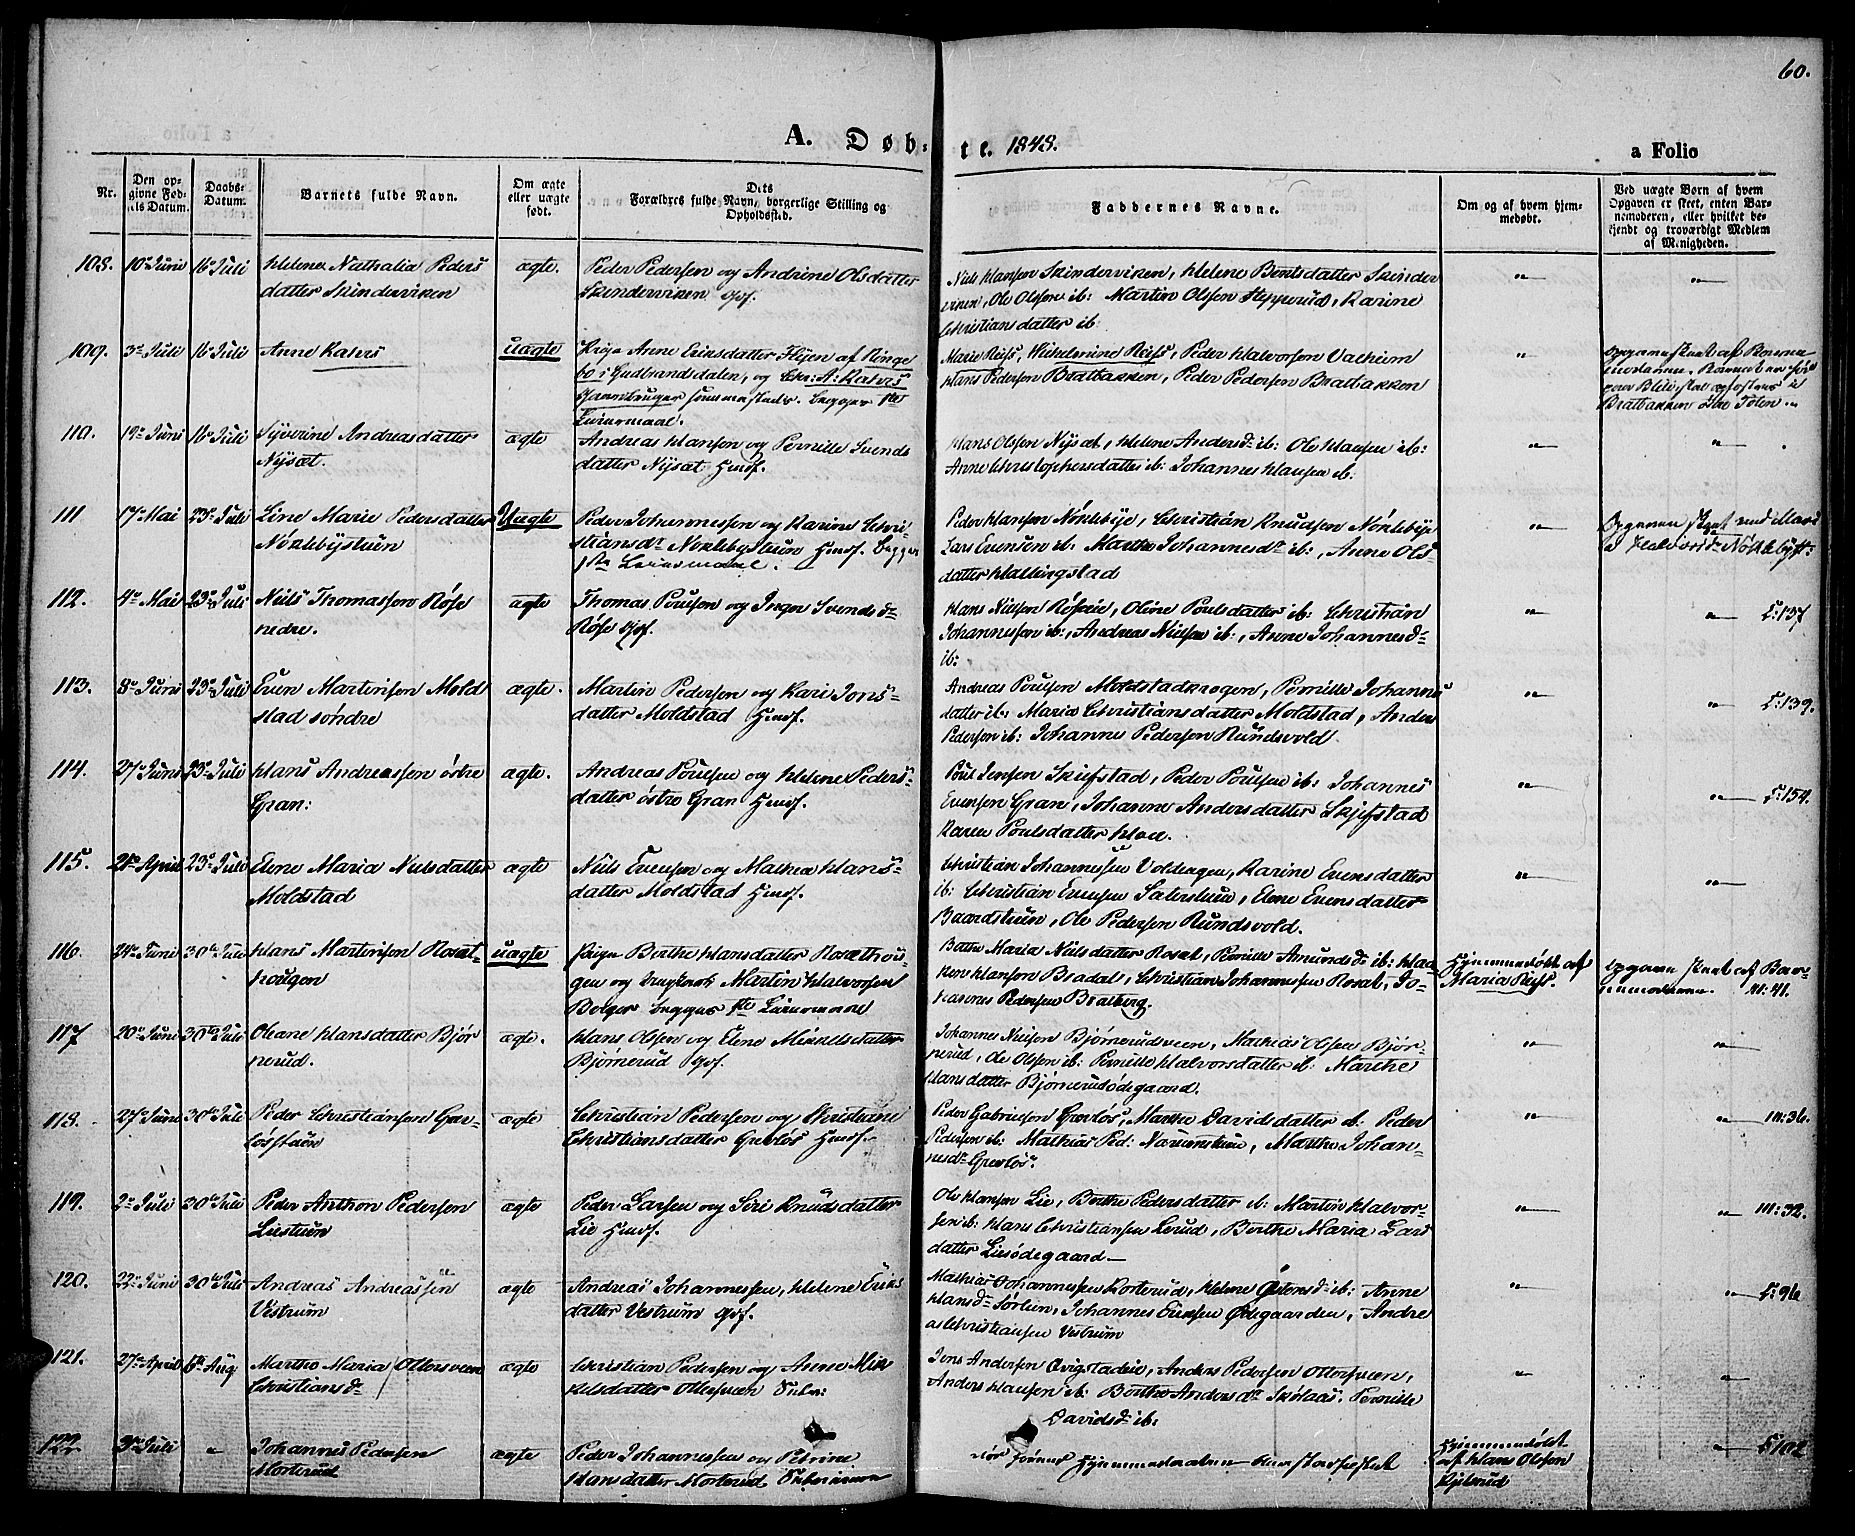 60.
A. Døb-te. 1848.
a Folio
Nr.
Den op-
givne Fød-
sels Datum.
Daabs-
Datum.
Barnets fulde Navn.
Om ægte
eller uægte
født.
Dets
Forældres fulde Navn, borgerlige Stilling og
Opholdssted.
Faddernes Navne.
Om og af hvem hjem-
medøbt.
Ved uægte Børn af hvem
Opgaven er skeet, enten Bar-
nemoderen, eller hvilket be-
kjendt og troværdigt Medlem
af Menigheden.
108. 10de Juni 16de Juli Helene Nathalia Peders
datter Skinderviken
ægte.
Peder Pedersen og Andrine Olsdatter
Skinderviken Gjf.
Niels Hansen Skinderviken, Helene Berntsdatter Skinder
viken, Ole Olsen ib: Martin Olsen Hepperud, Karine
Christiansdatter ib:
109. 3de Juli 16de Juli Anne
uægte
Pige Anne Eriksdatter af Ringe
bo i Gudbrandsdalen, og Chr: A:
begges 1ste
Leiermaal.
Marie Reiss, Wilhelmine Reiss, Peder Halvorsen
Hans Pedersen Bratbakken, Peder Pedersen Bratbakken
Opgaven skeet af Barne
moderen. Barnet er
Bratbakken Øtre Toten.
110. 19de Juni 16de Juli Syverine Andreasdatter
Nysæt.
ægte
Andreas Hansen og Pernille Svends
datter Nysæt Hmdf.
Hans Olsen Nysæt, Helene Andersdr ib: Ole Hansen ib:
Anne Christophersdatter ib: Johannes Hansen ib.
111 17de Mai 23de Juli Line Marie Pedersdatter
Nøklebystuen
Uægte
Peder Johannessen og Karine Chri-
stiansdr Nøklebystuen Hmdf. begges
1ste Leiermaal.
Peder Hansen Nøklebye, Christian Knudsen Nøklebye
Lars Evensen ib: Marthe Johannesdr ib:, Anne Ols
datter Hallingstad
Opgaven skeet ved Mari
a Halvorsdr Nøklebyst:
112. 4de Mai 23de Juli Niels Thomassen Røise
nedre.
ægte
Thomas Poulsen og Inger Svendsdr
Røise Gjf.
Hans Nielsen, Oline Poulsdatter ib: Christian
Johannessen ib:, Andreas Nielsen ib:, Anne Johannesdr
ib:
F:137
113. 8de Juni 23de Juli Even Martinsen Mold
stad søndre
ægte.
Martin Pedersen og Kari Jons-
datter Moldstad Hmdf.
Andreas Poulsen Moldstadkragen, Pernille Johannes
datter ib: Maria Christiansdatter Moldstad, Anders
Pedersen ib: Johannes Pedersen Rundsvold.
F:139.
114. 27de Juni 23de Juli Hans Andreassen østre
Gran:
ægte.
Andreas Poulsen og Helene Peders-
datter østre Gran Hmdf.
Poul Jensen Skjefstad, Peder Poulsen ib: Johannes
Evensen Gran, Johanne Andersdatter Skjefstad
Karen Poulsdatter
F:154.
115. 21de April 23de Juli Elene Maria Nielsdatter
Moldstad
ægte
Niels Evensen og Mathea Hans-
datter Moldstad Hmdf.
Christian Johannessen Voldengen, Karine Evensdatter
ib: Christian Evensen Saterstuen, Elene Evensdatter
Baardstuen, Ole Pedersen Rundsvold.
116. 24de Juni 30te Juli Hans Martinsen Rosæt-
hougen
uægte
Pige Berthe Hansdatter Rosæthou-
gen og Ungkarl Martin Halvorsen
Bolger begges 1ste Leiermaal
Berthe Maria Nielsdatter Rosæt, Pernille Amundsdr ib: Haa
ken Hansen Bradal, Christian Johannessen Rosæt, Jo-
hannes Pedersen Bratberg.
Hjemmedøbt af
Maria Reiss.
Opgaven skeet af Bar-
nemoderen. M:41.
117 20de Juni 30te Juli Oleane Hansdatter Bjør
nerud.
ægte.
Hans Olsen og Elene Mikkelsdatter
Bjørnerud Gjf.
Johannes Nielsen Bjørnerudveen, Mathias Olsen Bjør-
nerud, Ole Olsen ib: Pernille Halvorsdatter ib. Marthe
Hansdatter Bjørnerudødegaard.
118. 27de Juni 30te Juli Peder Christiansen Grev-
løsstuen
ægte
Christian Pedersen og Kristiane
Christiansdatter Grevløs Hmdf.
Peder Gabrielsen Grevløs, Marthe Davidsdatter ib: Peder
Pedersen ib: Mathias Ped:, Marthe Johan-
nesdr Grevløs.
M:36.
119. 2de Juli 30te Juli Peder Anthon Pedersen
Liestuen
ægte
Peder Larsen og Siri Knudsdatter
Lie Hmdf.
Ole Hansen Lie, Berthe Pedersdatter ib: Martin Halvor-
sen ib: Hans Christiansen, Berthe Maria Lars
datter Liesødegaard
M:32.
120. 22de Juni 30te Juli Andreas Andreassen
Vestrum
ægte
Andreas Johannessen, Helene Eriks
datter Vestrum Gjf.
Mathias Johannessen Korterud, Helene Østensdr ib: Anne
Hansdr Sørlien, Johannes Eriksen Ødegaarden, Andre
as Christiansen Vestrum
F:96
121. 27de April 6te Aug Marthe Maria Ottersveen
Christiansdr
ægte
Christian Pedersen og Anne Mik
kelsdatter Ottersveen Inder:
Jens Andersen, Anders Pedersen Ottersveen,
Anders Hansen ib: Berthe Andersdr, Pernille
Davidsdr ib:
122. 3de Juli Johannes Pedersen
Morterud
ægte
Peder Johannessen og Petrine
Hansdatter Morterud
Hjemmedøbt
af Hans Olsen
F:102